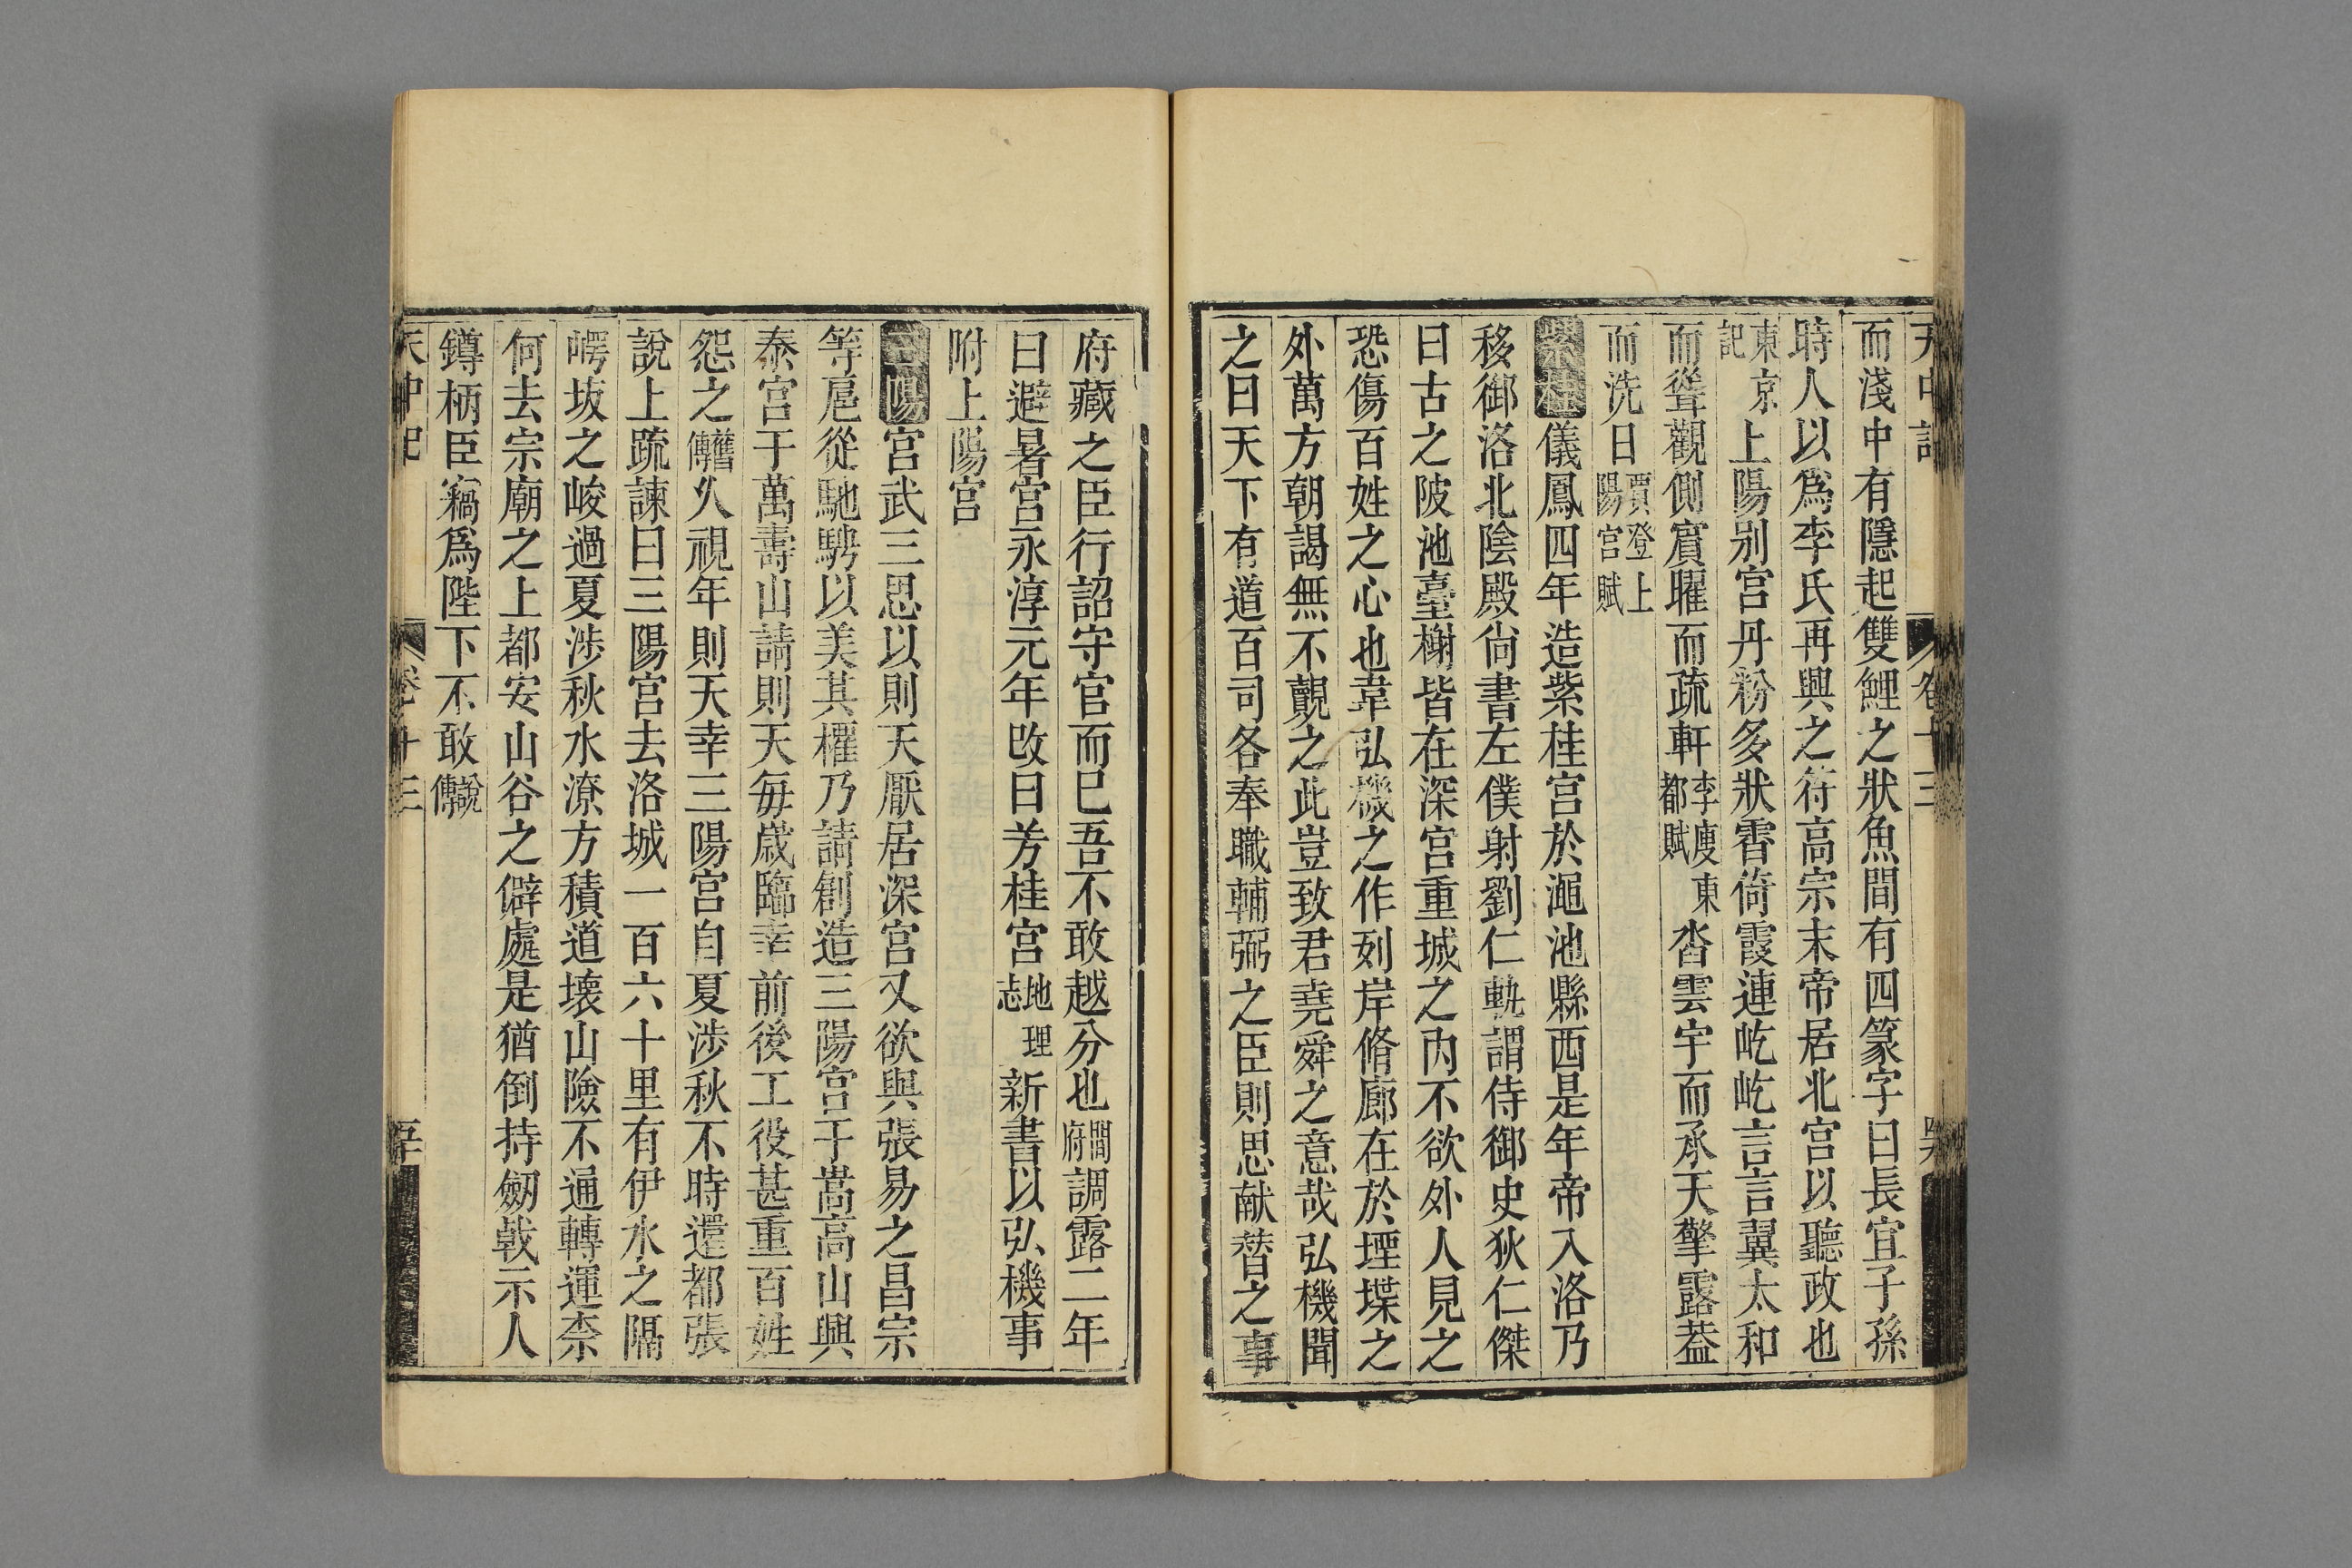 天中記 卷十三
而淺中有隱起雙鯉之狀魚間有四篆字曰長宜子孫
時人以爲李氏再興之符高宗末帝居北宮以聽政也
東京記上陽别宮丹粉多狀霤倚霞連屹屹言言翼太和
而聳觀側賔曜而疏軒李庾東都賦沓雲宇而承天擎露葢
而洗日賈登上陽宮賦
紫桂儀鳳四年造紫桂宮於澠池縣西是年帝入洛乃
移御洛北陰殿尙書左僕射劉仁軌謂侍御史狄仁傑
曰古之陂池臺榭皆在深宮重城之內不欲外人見之
恐傷百姓之心也韋弘機之作列岸脩廊在於堙堞之
外萬方朝謁無不覿之此豈致君堯舜之意哉弘機聞
之曰天下有道百司各奉職輔弼之臣則思献替之事
府藏之臣行詔守官而已吾不敢越分也閒府調露二年
曰避暑宮永淳元年改曰芳桂宮地理志新書以弘機事
附上陽宮
三陽宮武三思以則天厭居深宮又欲與張易之昌宗
等扈從馳騁以美其權乃請創造三陽宮于嵩高山興
泰宮于萬壽山請則天每歲臨幸前後工役甚重百姓
怨之舊傳久視年則天幸三陽宮自夏涉秋不時還都張
說上疏諫曰三陽宮去洛城一百六十里有伊水之隔
崿坂之峻過夏涉秋水潦方積道壊山險不通轉運柰
何去宗廟之上都安山谷之僻處是猶倒持劒戟示人
鐏柄臣竊爲陛下不敢說傳
天中記 卷十三 五十